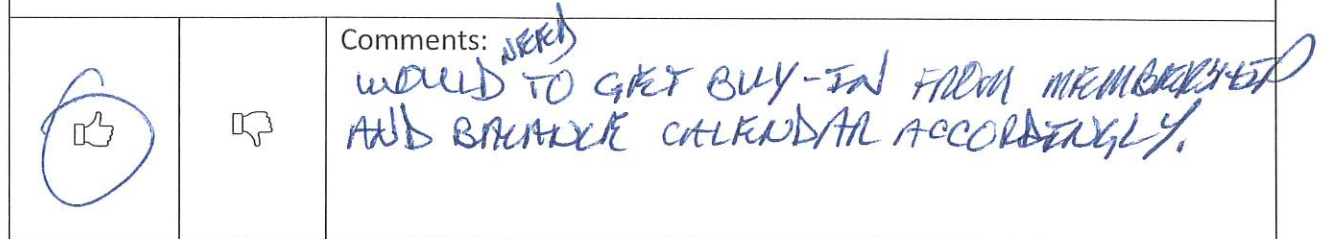 Comments: NEED
WOULD TO GET BUY-IN FROM MEMBERSHIP
AND BALANCE CALENDAR ACCORDINGLY.